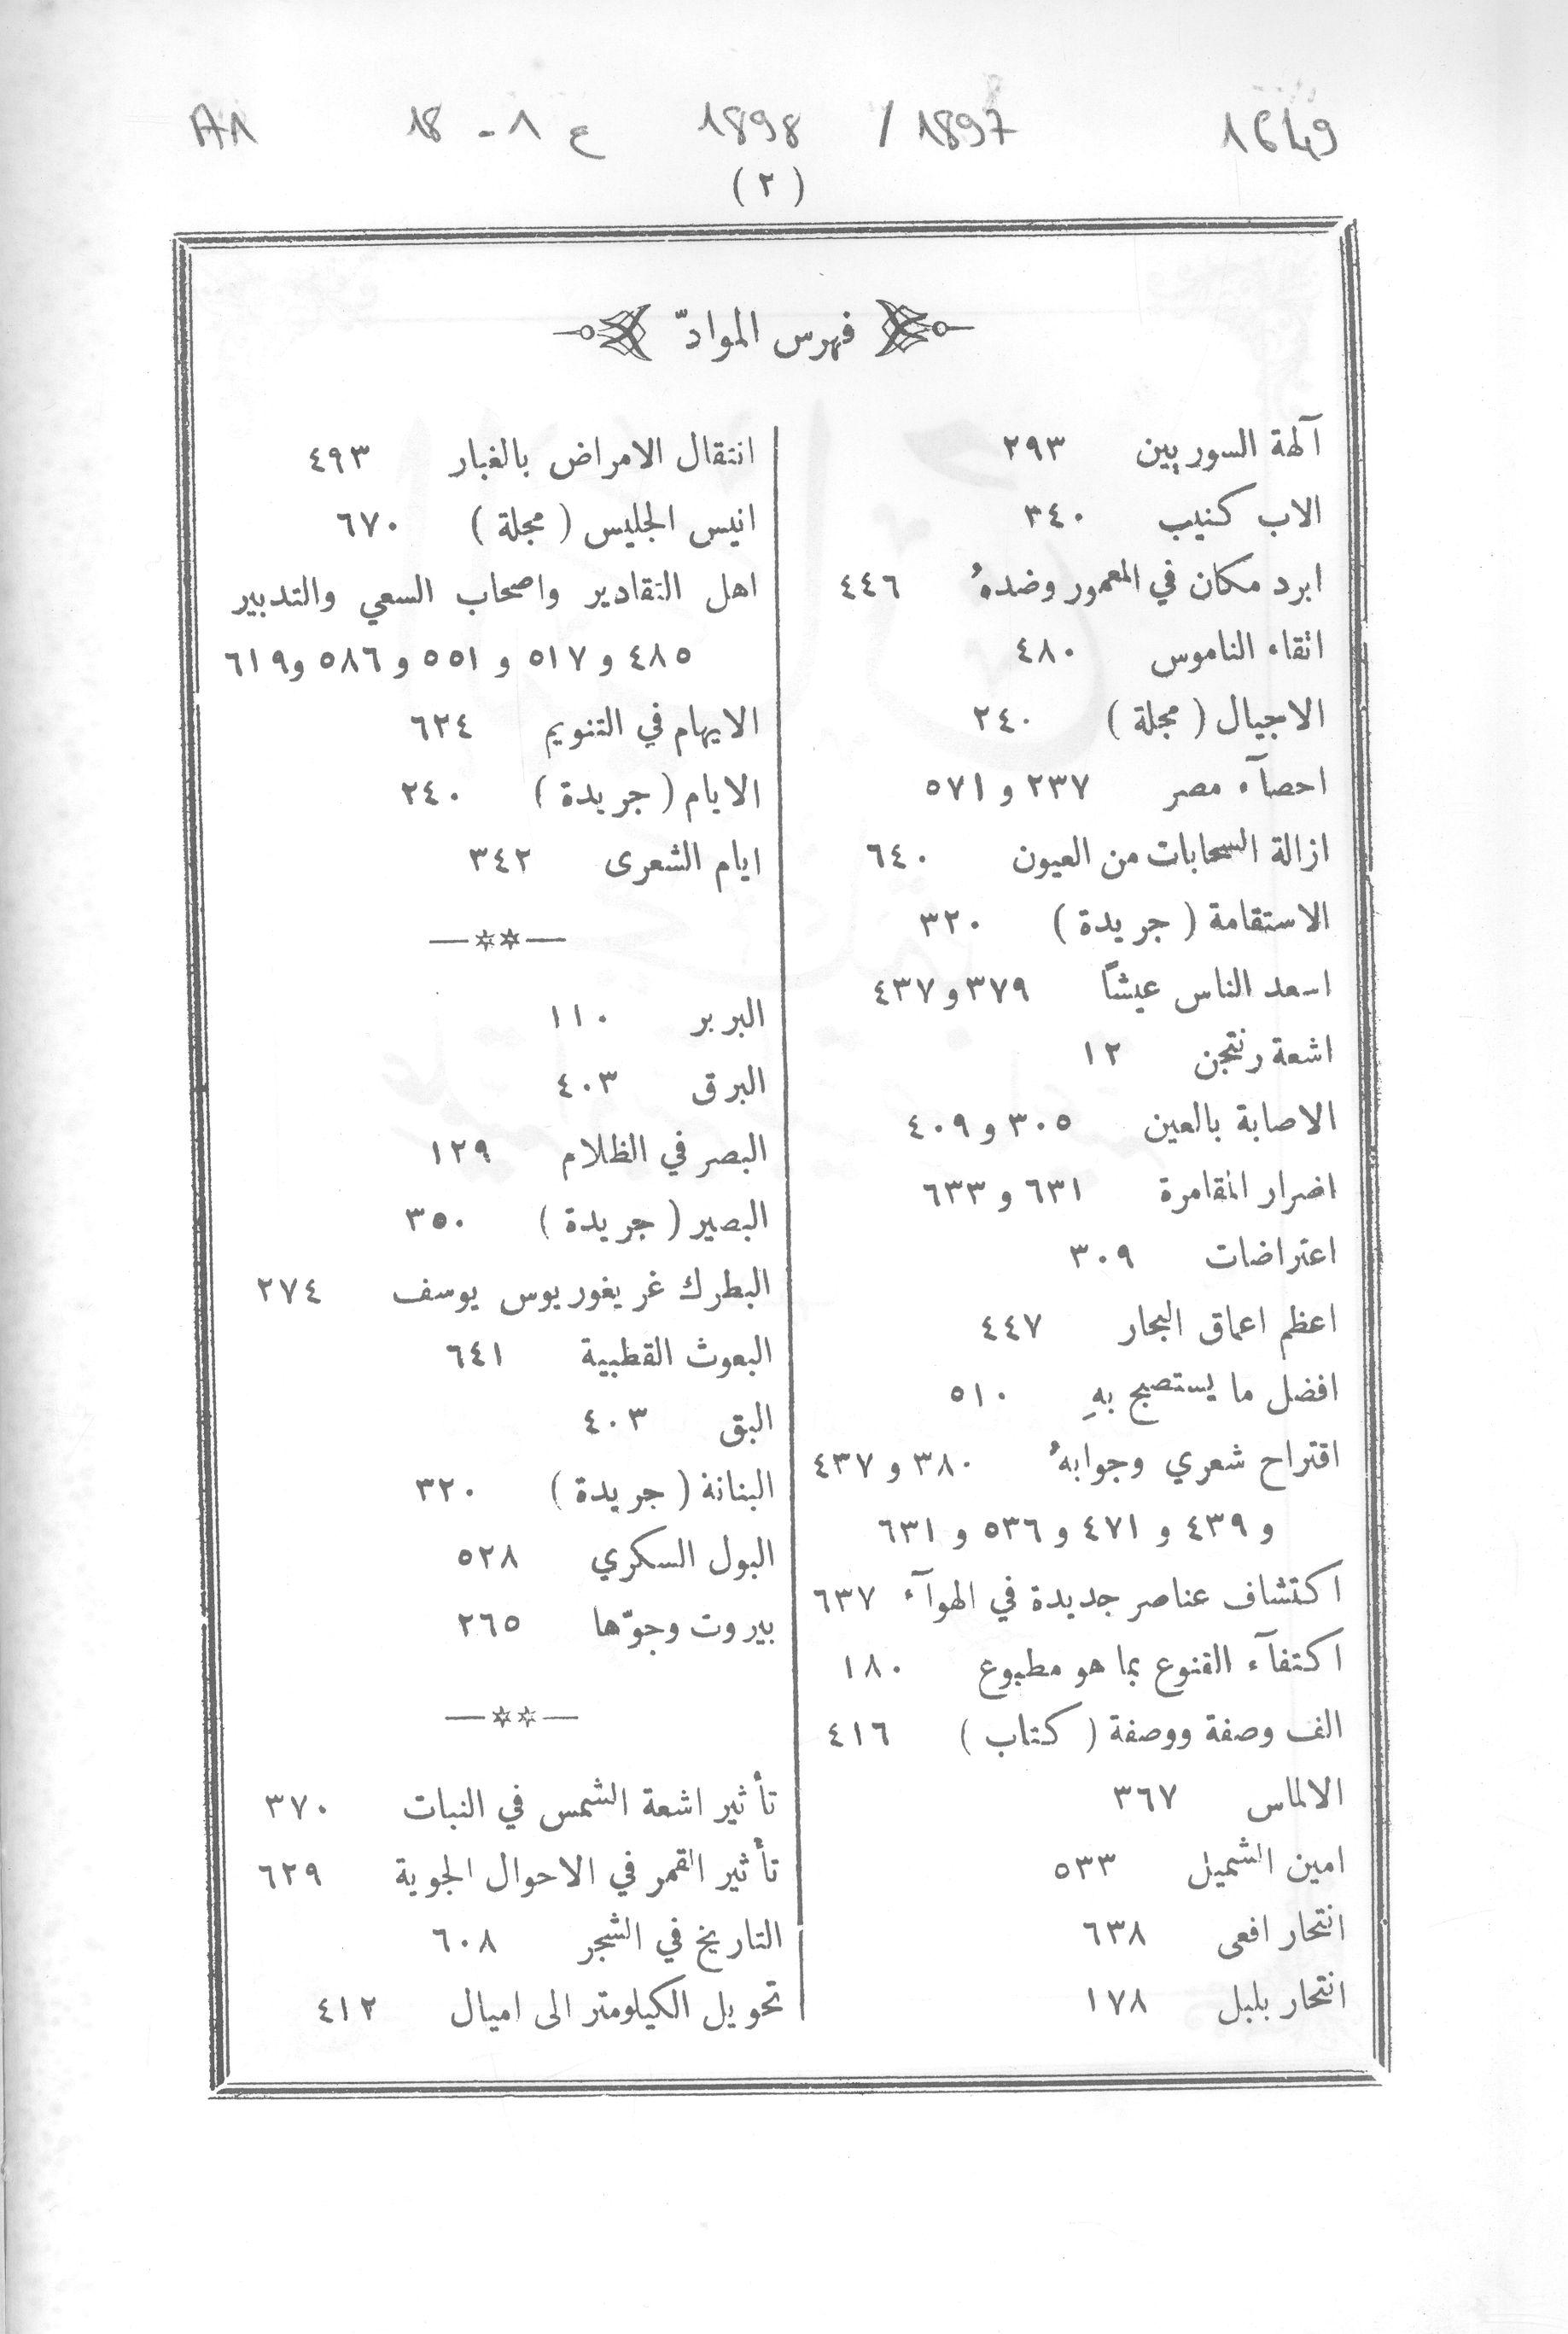 1649 1897 / 1898 ع 1 - 18 A1
( ٢ )
فهرس الموادّ
آلهة السوريين ٢٩٣
الاب كنيب ٣٤٠
ابرد مكان في المعمور وضدهُ ٤٤٦
اتقاء الناموس ٤٨٠
الاجيال ( مجلة ) ٢٤٠
احصآء مصر ٢٣٧ و ٥٧١
ازالة السحابات من العيون ٦٤٠
الاستقامة ( جريدة ) ٣٢٠
اسعد الناس عيشاً ٣٧٩ و ٤٣٧
اشعة رنتجن ١٢
الاصابة بالعين ٣٠٥ و ٤٠٩
اضرار المقامرة ٦٣١ و ٦٣٣
اعتراضات ٣٠٩
اعظم اعماق البحار ٤٤٧
افضل ما يستصبح بهِ ٥١٠
اقتراح شعري وجوابهُ ٣٨٠ و ٤٣٧
و ٤٣٩ و ٤٧١ و ٥٣٦ و ٦٣١
اكتشاف عناصر جديدة في الهوآء ٦٣٧
اكتفآء القنوع بما هو مطبوع ١٨٠
الف وصفة ووصفة ( كتاب ) ٤١٦
الالماس ٣٦٧
امين الشميل ٥٣٣
انتحار افعى ٦٣٨
انتحار بلبل ١٧٨
انتقال الامراض بالغبار ٤٩٣
انيس الجليس ( مجلة ) ٦٧٠
اهل التقادير واصحاب السعي والتدبير
٤٨٥ و ٥١٧ و ٥٥١ و ٥٨٦ و ٦١٩
الايهام في التنويم ٦٢٤
الايام ( جريدة ) ٢٤٠
ايام الشعرى ٣٤٢
—**—
البربر ١١٠
البرق ٤٠٣
البصر في الظلام ١٢٩
البصير ( جريدة ) ٣٥٠
البطرك غريغوريوس يوسف ٢٧٤
البعوث القطبية ٦٤١
البق ٤٠٣
البنانة ( جريدة ) ٣٢٠
البول السكري ٥٢٨
بيروت وجوّها ٢٦٥
—**—
تأثير اشعة الشمس في النبات ٣٧٠
تأثير القمر في الاحوال الجوية ٦٢٩
التاريخ في الشجر ٦٠٨
تحويل الكيلومتر الى اميال ٤١٢